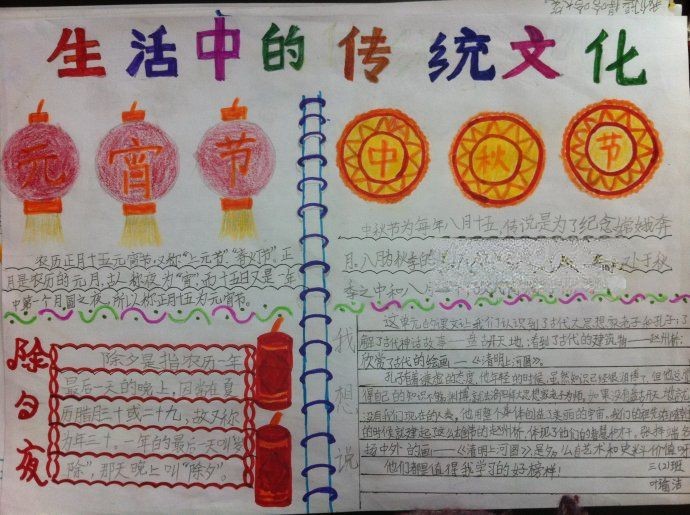 生活中的传统文化
元宵节
农历正月十五元宵节,又称"上元节",
正月是农历的元月,古人称夜为"宵",而十五日又是一年
中第一个月圆之夜,所以称正月十五为元宵节。
除夕夜
除夕是指农历一年
最后一天的晚上,因常在夏
历腊月三十或二十九,故又称
为年三十。一年的最后一天叫岁
除",那天晚上叫"除夕"。
中秋节
中秋节为每年八月十五,传说是为了纪念嫦娥奔
月。八月为秋季的 又处于秋
季之中和八月
我想说
这单元的课文让我们认识到了古代大思想家老子和孔子;了
解了古代神话故事——盘古开天地;看到了古代的建筑物——赵州桥;
欣赏了古代的绘画——《清明上河图》。
他年轻的时候,虽然知识已经很渊博了,但他还
觉得自己的知识不够 如果没有盘古
没有我们现在的人类。他用整个身体创造了美丽的宇宙。
的时候就建起这么雄伟的赵州桥,体现了他们的智慧和才干。张择端名
扬中外的画——《清明上河图》是多么有艺术和史料价值呀
他们都是值得我学习的好榜样!
三(2)班
叶瑜洁